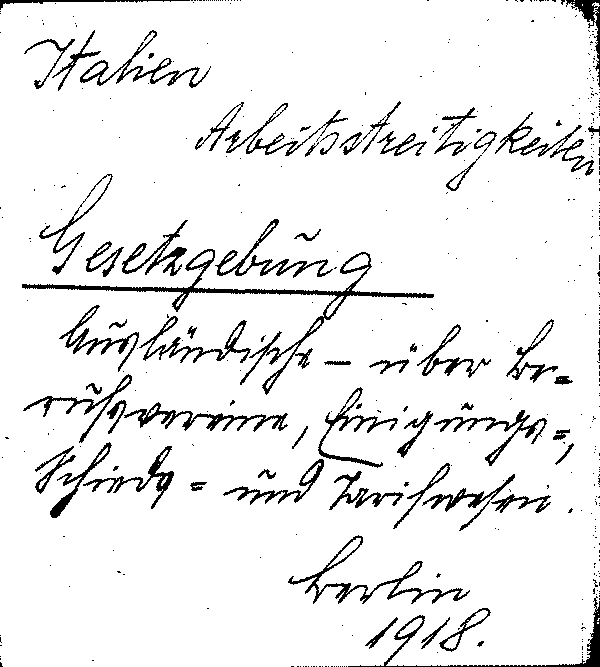 Italien
Arbeitsstreitigkeiten
Gesetzgebung
Ausländische – über Be=
rufsvereine, Einigungs=,
Schieds= und Tarifwesen.
Berlin
1918.